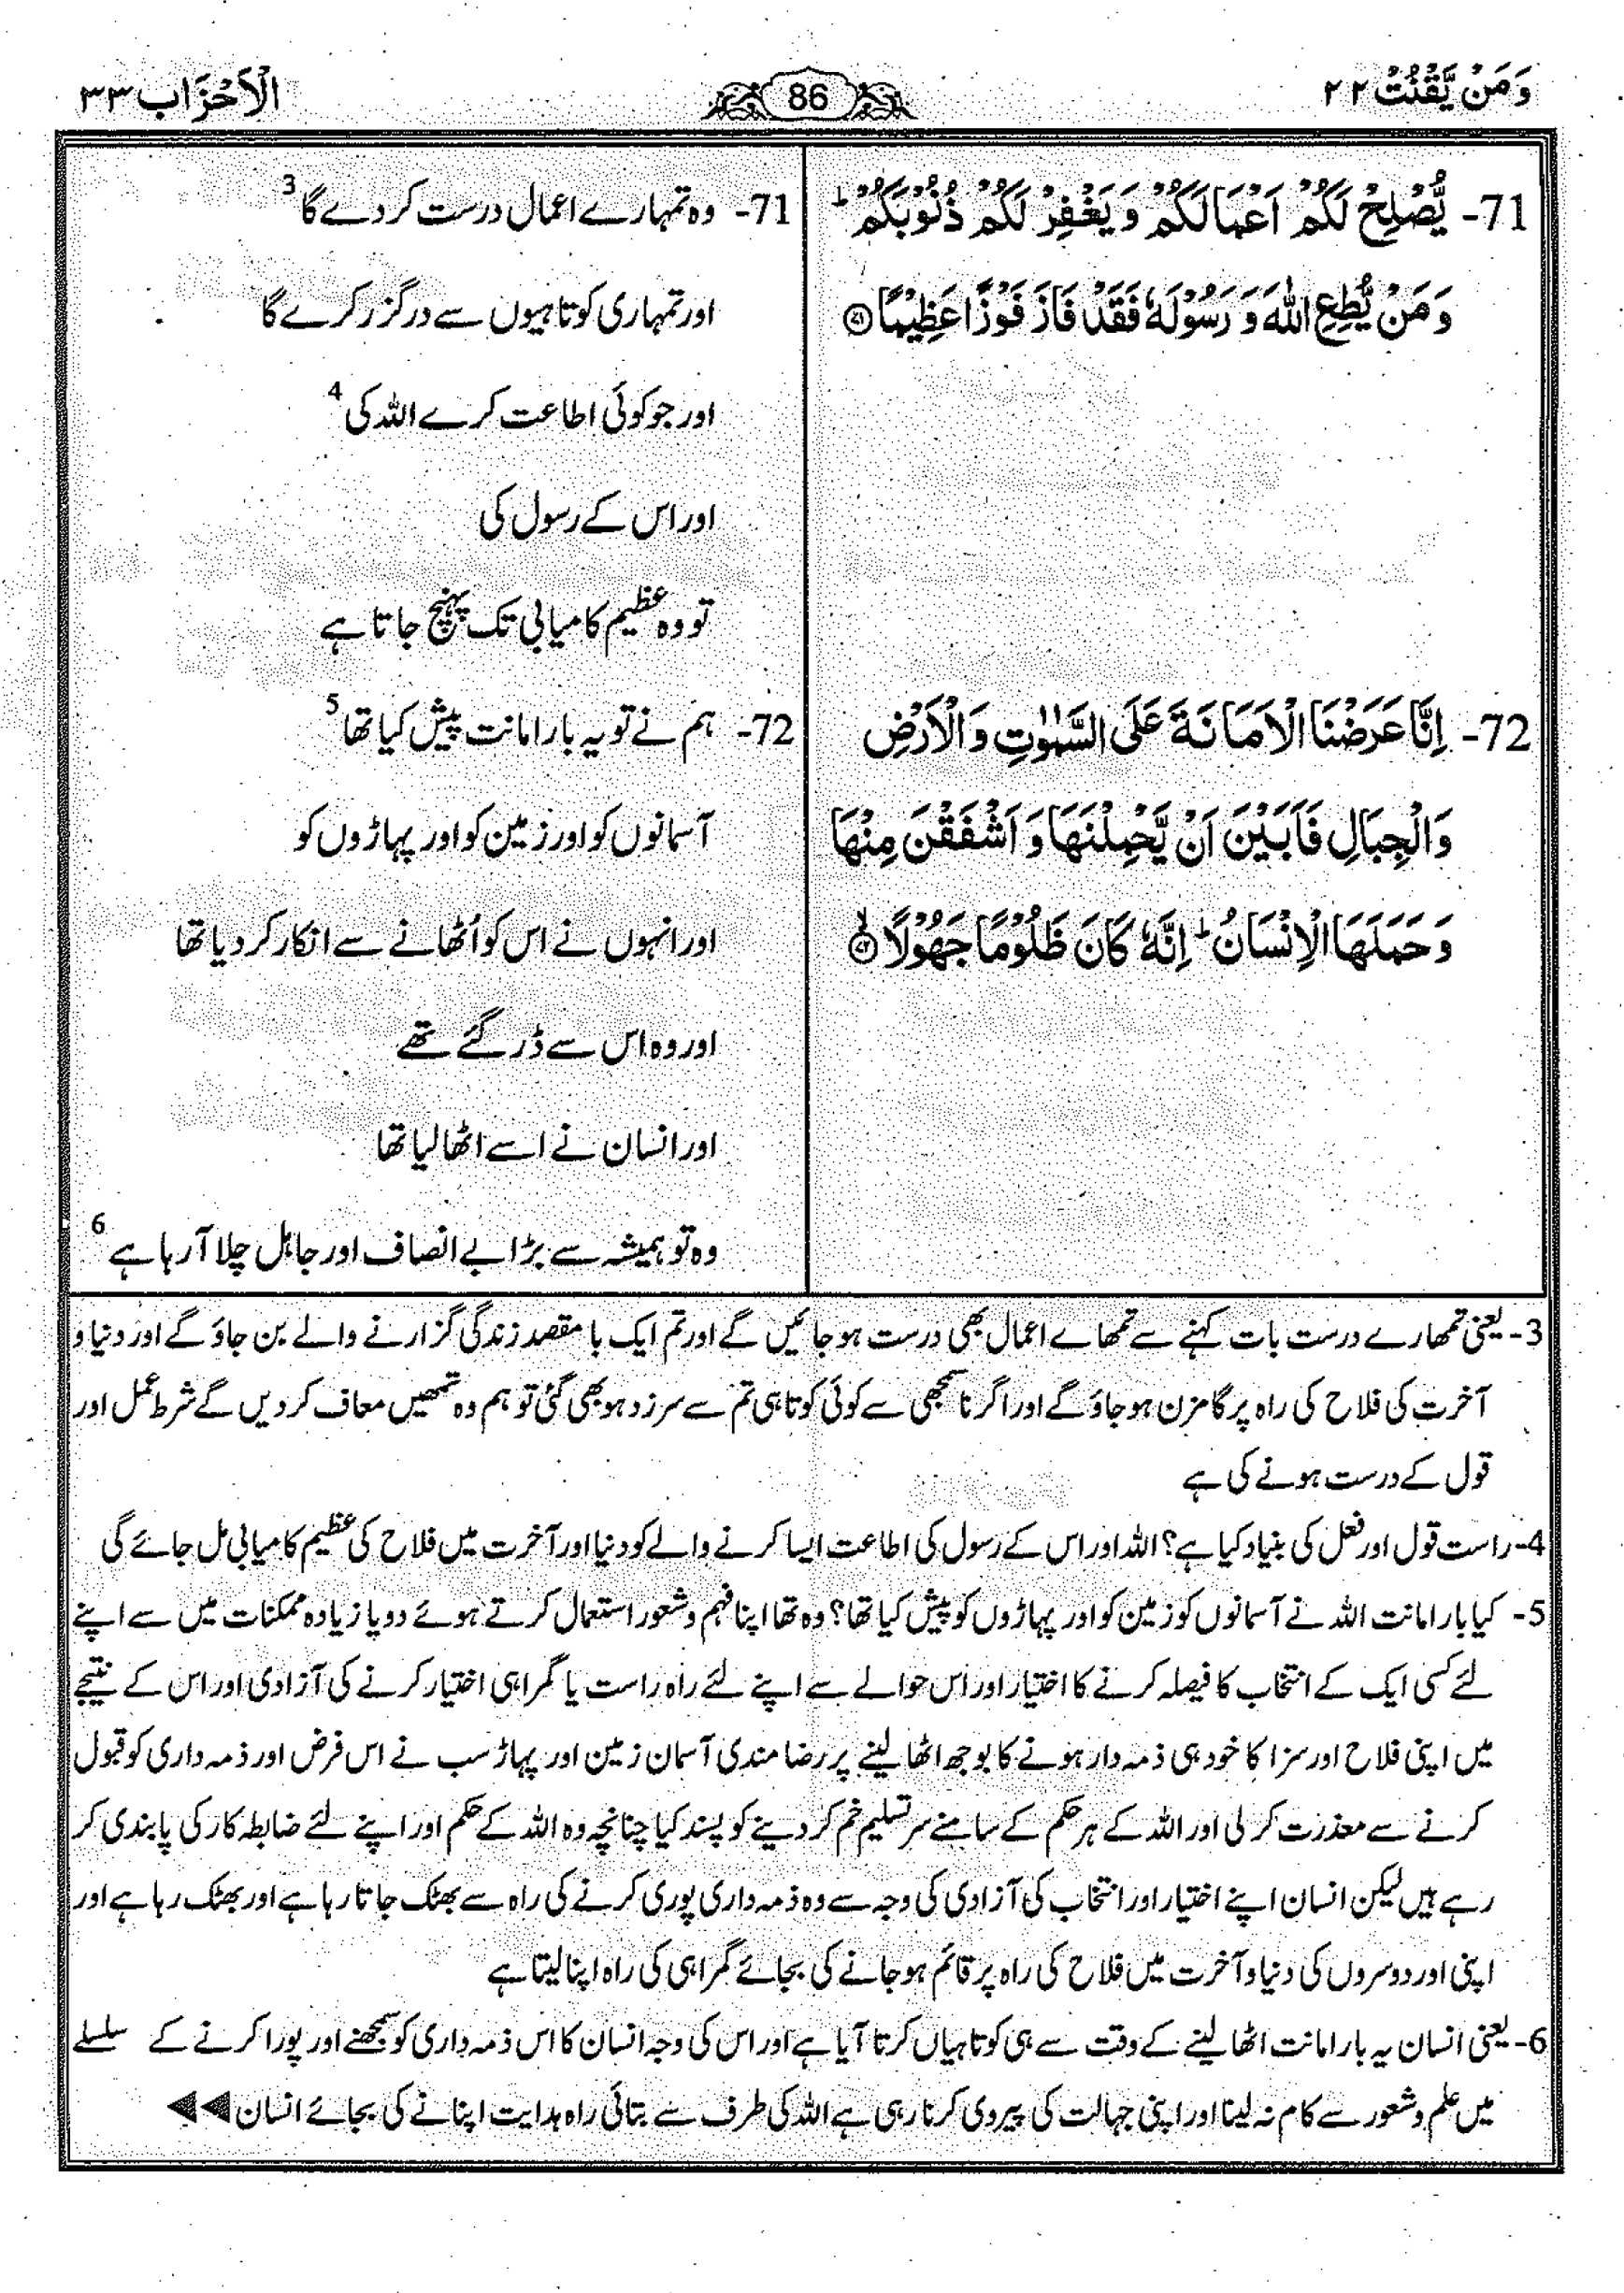 وَمَنْ يَّقْنُتْ ۲۲
86
الْاَحْزَاب ۳۳
71- يُّصْلِحْ لَكُمْ اَعْمَالَكُمْ وَيَغْفِرْ لَكُمْ ذُنُوْبَكُمْ ؕ
وَمَنْ يُّطِعِ اللّٰهَ وَرَسُوْلَهٗ فَقَدْ فَازَ فَوْزًا عَظِيْمًا ۝۷۱
72- اِنَّا عَرَضْنَا الْاَمَانَةَ عَلَى السَّمٰوٰتِ وَالْاَرْضِ
وَالْجِبَالِ فَاَبَيْنَ اَنْ يَّحْمِلْنَهَا وَاَشْفَقْنَ مِنْهَا
وَحَمَلَهَا الْاِنْسَانُ ؕ اِنَّهٗ كَانَ ظَلُوْمًا جَهُوْلًا ۝۷۲
71- وہ تمہارے اعمال درست کر دے گا 3
اور تمہاری کوتاہیوں سے درگزر کرے گا
اور جو کوئی اطاعت کرے اللہ کی 4
اور اس کے رسول کی
تو وہ عظیم کامیابی تک پہنچ جاتا ہے
72- ہم نے تو یہ بار امانت پیش کیا تھا 5
آسمانوں کو اور زمین کو اور پہاڑوں کو
اور انہوں نے اس کو اُٹھانے سے انکار کر دیا تھا
اور وہ اس سے ڈر گئے تھے
اور انسان نے اسے اٹھا لیا تھا
وہ تو ہمیشہ سے بڑا بے انصاف اور جاہل چلا آ رہا ہے 6
3- یعنی تمھارے درست بات کہنے سے تمھاے اعمال بھی درست ہو جائیں گے اور تم ایک با مقصد زندگی گزارنے والے بن جاؤ گے اور دنیا و
آخرت کی فلاح کی راہ پر گامزن ہو جاؤ گے اور اگر ناسمجھی سے کوئی کوتاہی تم سے سرزد ہو بھی گئی تو ہم وہ تمھیں معاف کر دیں گے شرط عمل اور
قول کے درست ہونے کی ہے
4- راست قول اور فعل کی بنیاد کیا ہے؟ اللہ اور اس کے رسول کی اطاعت ایسا کرنے والے کو دنیا اور آخرت میں فلاح کی عظیم کامیابی مل جائے گی
5- کیا بار امانت اللہ نے آسمانوں کو زمین کو اور پہاڑوں کو پیش کیا تھا؟ وہ تھا اپنا فہم و شعور استعمال کرتے ہوئے دو یا زیادہ ممکنات میں سے اپنے
لئے کسی ایک کے انتخاب کا فیصلہ کرنے کا اختیار اور اس حوالے سے اپنے لئے راہ راست یا گمراہی اختیار کرنے کی آزادی اور اس کے نتیجے
میں اپنی فلاح اور سزا کا خود ہی ذمہ دار ہونے کا بوجھ اٹھا لینے پر رضا مندی آسمان زمین اور پہاڑ سب نے اس فرض اور ذمہ داری کو قبول
کرنے سے معذرت کر لی اور اللہ کے ہر حکم کے سامنے سر تسلیم خم کر دینے کو پسند کیا چنانچہ وہ اللہ کے حکم اور اپنے لئے ضابطہ کار کی پابندی کر
رہے ہیں لیکن انسان اپنے اختیار اور انتخاب کی آزادی کی وجہ سے وہ ذمہ داری پوری کرنے کی راہ سے بھٹک جاتا رہا ہے اور بھٹک رہا ہے اور
اپنی اور دوسروں کی دنیا و آخرت میں فلاح کی راہ پر قائم ہو جانے کی بجائے گمراہی کی راہ اپنا لیتا ہے
6- یعنی انسان یہ بار امانت اٹھا لینے کے وقت سے ہی کوتاہیاں کرتا آیا ہے اور اس کی وجہ انسان کا اس ذمہ داری کو سمجھنے اور پورا کرنے کے سلسلے
میں علم و شعور سے کام نہ لینا اور اپنی جہالت کی پیروی کرنا رہی ہے اللہ کی طرف سے بتائی راہ ہدایت اپنانے کی بجائے انسان ◀◀